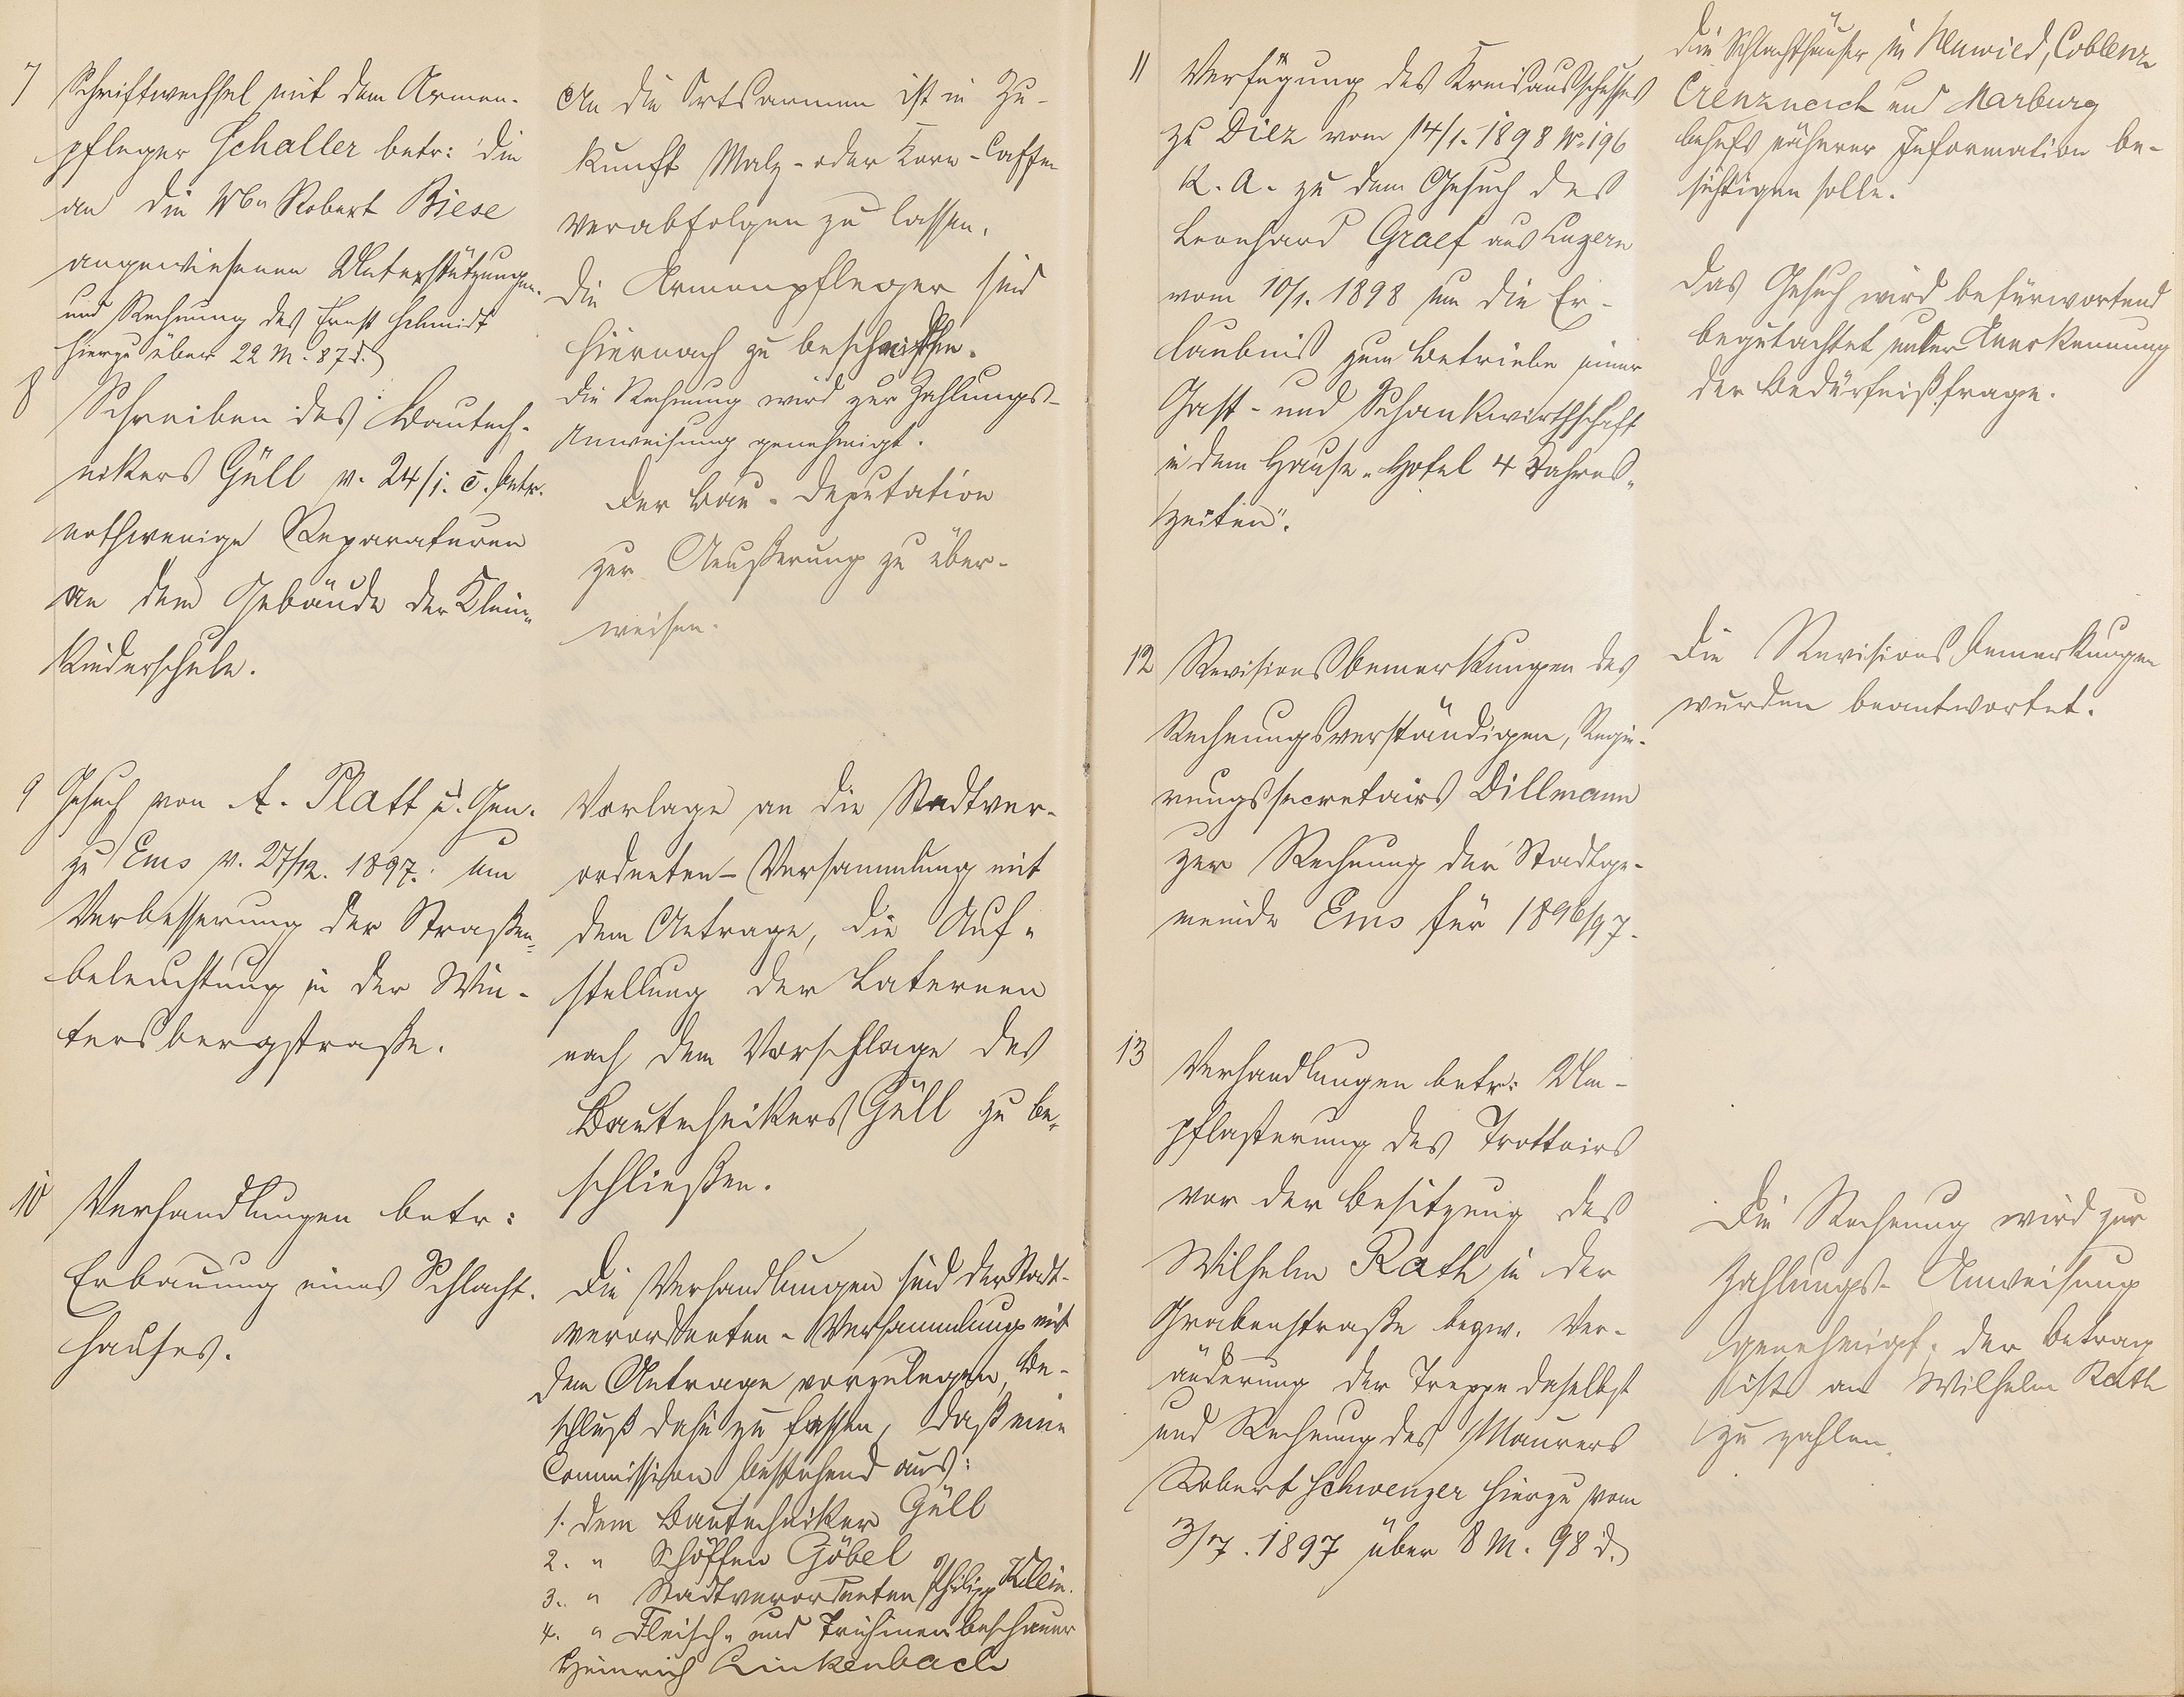 7 Schriftwechsel mit dem Armen-
pfleger Schaller betr: die
an die Wwe Robert Biese
angewiesenen Unterstützungen.
und Rechnung des Ernst Schmidt
hierzu über 22 M. 87 d.
An die Ortsarmen ist in Zu-
kunft Malz- oder Korn-Caffee
verabfolgen zu lassen.
Die Armenpfleger sind
hiernach zu bescheiden.
Die Rechnung wird zur Zahlungs-
Anweisung genehmigt.
8 Schreiben des Bautech-
nikers Güll v. 24/1. c. betr.
nothwenige Reparaturen
an dem Gebäude der Klein-
kinderschule.
Der Bau-Deputation
zur Aeußerung zu über-
weisen.
9 Gesuch von A. Platt u. Gen.
zu Ems v. 27/12. 1897. um
Verbesserung der Straßen-
beleuchtung in der Win-
tersbergstraße.
Vorlage an die Stadtver-
ordneten-Versammlung mit
dem Antrage, die Auf-
stellung der Laternen
nach dem Vorschlage des
Bautechnikers Güll zu be-
schließen.
10 Verhandlungen betr:
Erbauung eines Schlacht-
hauses.
Die Verhandlungen sind der Stadt-
verordneten-Versammlung mit
dem Antrage vorzulegen, Be-
schluß dahin zu fassen, daß eine
Commission bestehend aus:
1. dem Bautechniker Güll
2. " Schöffen Göbel
3. " Stadtverordneten Philipp Klein.
4. " Fleisch- und Trichinenbeschauer
Heinrich Linkenbach
die Schlachthäuser in Neuwied, Coblenz
Creuznach und Marburg
behufs näherer Information be-
sichtigen solle.
11 Verfügung des Kreisausschusses
zu Diez vom 14/1. 1898 No 196
K. A. zu dem Gesuch des
Leonhard Graef aus Luzern
vom 10/1. 1898 um die Er-
laubniß zum Betriebe einer
Gast- und Schankwirthschaft
in dem Hause "Hotel 4 Jahres-
zeiten".
Das Gesuch wird befürwortend
begutachtet unter Anerkennung
der Bedürfnißfrage.
12 Revisionsbemerkungen des
Rechnungsverständigen, Regie-
rungssecretairs Dillmann
zur Rechnung der Stadtge-
meinde Ems für 1896/97.
Die Revisionsbemerkungen
wurden beantwortet.
13 Verhandlungen betr: Um-
pflasterung des Trottoirs
vor der Besitzung des
Wilhelm Rath in der
Grabenstraße bezw. Ver-
änderung der Treppe daselbst
und Rechnung des Maurers
Robert Schwenzer hierzu vom
3/7. 1897 über 8 M. 98 d.
Die Rechnung wird zur
Zahlungs-Anweisung
genehmigt, der Betrag
ist an Wilhelm Rath
zu zahlen.